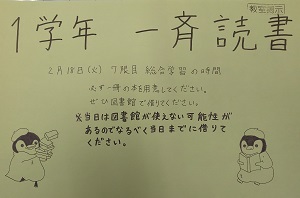 教室掲示
1学年 一斉読書
2月18日(火) 7限目 総合学習の時間
必ず一冊の本を用意してください。
ぜひ図書館で借りてください。
※当日は図書館が使えない可能性が
あるのでなるべく当日までに借りて
ください。